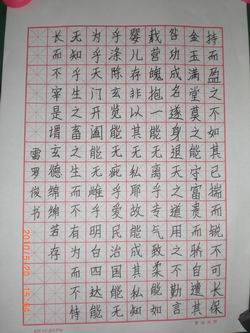 持而盈之不如其已揣而锐不可长保
金玉满堂莫之能守富贵而骄自遗其
咎功成名遂身退天之道用之不勤
载营魄抱一能无离乎专气致柔能如
婴儿存非以其无私耶故能成其私知
乎涤除玄览能无疵乎爱民治国能无
为乎天门开阖能无雌乎明白四达能
无知乎生之畜之生而不有为而不恃
长而不宰是谓玄德绵绵若存
雷罗俊书